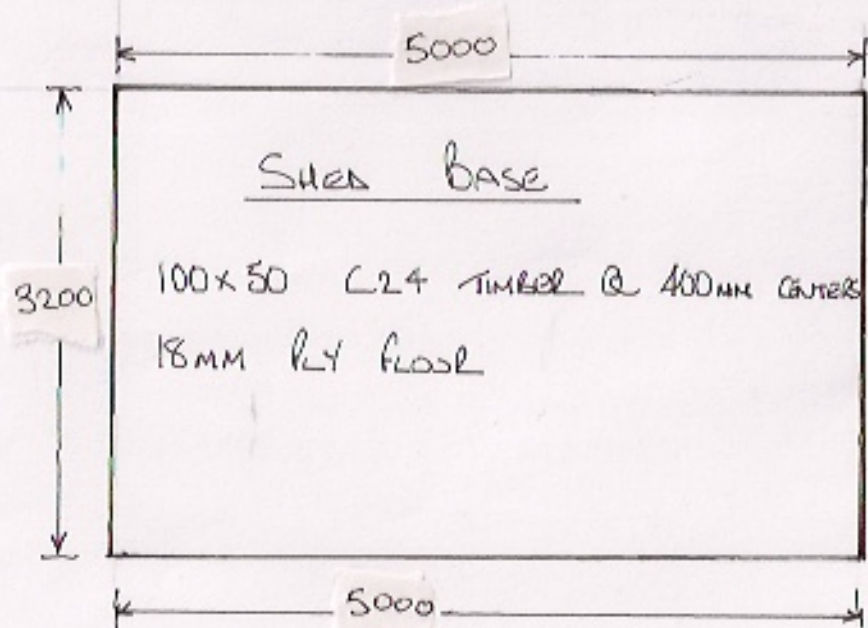 5000
SHED BASE
3200
100x50 C24 TIMBER @ 400MM CENTERS
18MM PLY FLOOR
5000